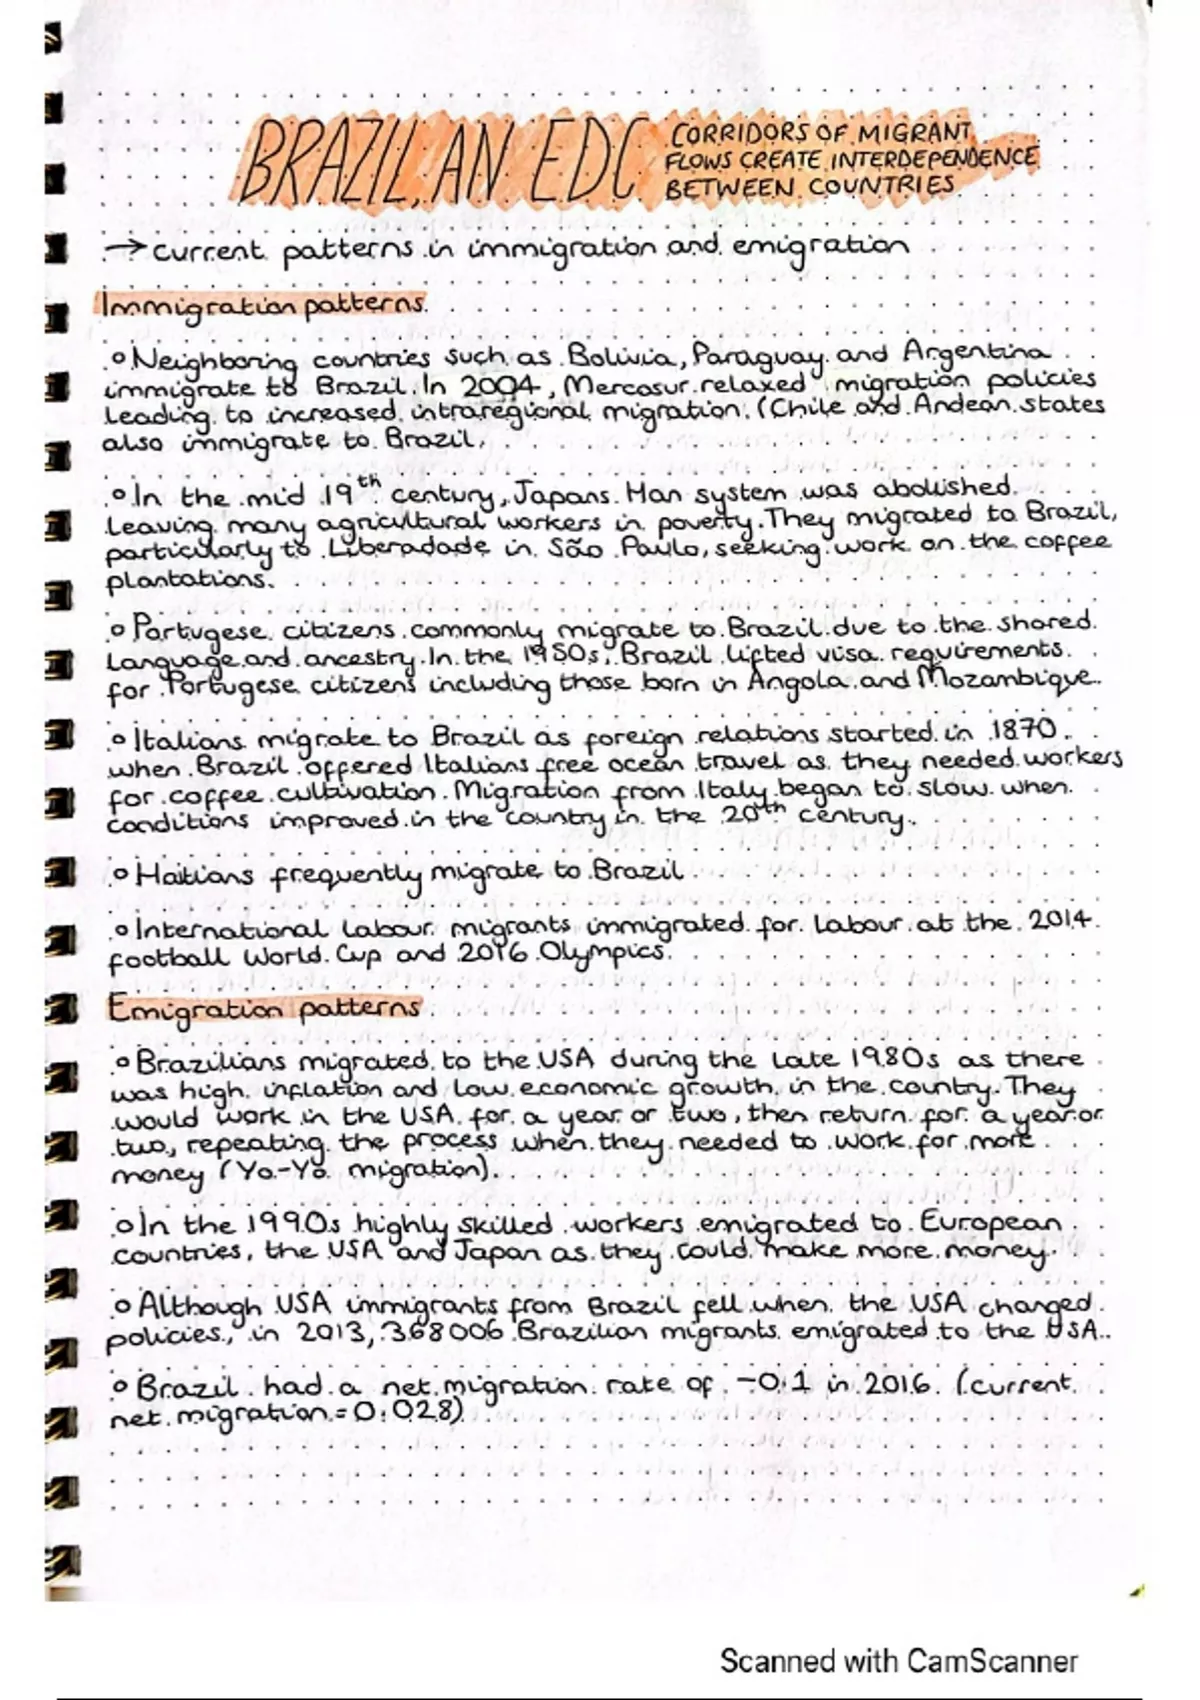 BRAZIL, AN EDC
CORRIDORS OF MIGRANT
FLOWS CREATE INTERDEPENDENCE
BETWEEN COUNTRIES
→ current patterns in immigration and emigration
Immigration patterns
o Neighboring countries such as Bolivia, Paraguay and Argentina
immigrate to Brazil. In 2004, Mercosur relaxed migration policies
leading to increased intraregional migration. (Chile and Andean states
also immigrate to Brazil.
o In the mid 19th century, Japans Han system was abolished
leaving many agricultural workers in poverty. They migrated to Brazil,
particularly to Liberadade in São Paulo, seeking work on the coffee
plantations.
o Portugese citizens commonly migrate to Brazil due to the shared
language and ancestry. In the 1950s, Brazil lifted visa requirements
for Portugese citizens including those born in Angola and Mozambique.
o Italians migrate to Brazil as foreign relations started in 1870
when Brazil offered Italians free ocean travel as they needed workers
for coffee cultivation. Migration from Italy began to slow when
conditions improved in the country in the 20th century.
o Haitians frequently migrate to Brazil
o International labour migrants immigrated for labour at the 2014
football World Cup and 2016 Olympics.
Emigration patterns
o Brazilians migrated to the USA during the late 1980s as there
was high inflation and low economic growth in the country. They
would work in the USA for a year or two, then return for a year or
two, repeating the process when they needed to work for more
money (Yo-Yo migration).
o In the 1990s highly skilled workers emigrated to European
countries, the USA and Japan as they could make more money.
o Although USA immigrants from Brazil fell when the USA changed
policies, in 2013, 368006 Brazilian migrants emigrated to the USA.
o Brazil had a net migration rate of -0.1 in 2016. (current
net migration = 0.028)
Scanned with CamScanner